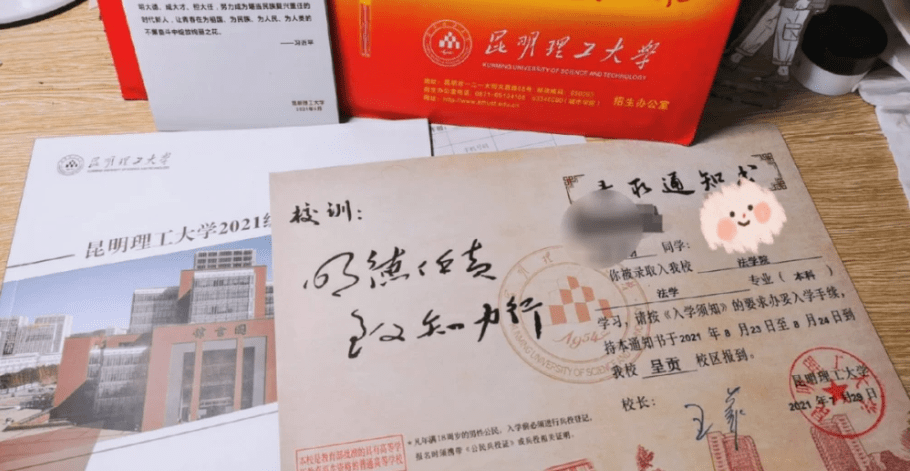 明大德、成大才、担大任，努力成为堪当民族复兴重任的
时代新人，让青春在为祖国、为民族、为人民、为人类的
不懈奋斗中绽放绚丽之花。
昆明理工大学
2021年
昆明理工大学
KUNMING UNIVERSITY OF SCIENCE AND TECHNOLOGY
招生办公室
昆明理工大学
昆明理工大学2021
图书馆
通知书
校训：
明德任责
致知力行
同学：
你被录取入我校 法学院
法学 专业（本科）
学习，请按《入学须知》的要求办妥入学手续，
持本通知书于2021年8月23日至8月24日到
我校 呈贡 校区报到。
校长：
昆明理工大学
2021年7月28日
1954
KUNMING UNIVERSITY OF SCIENCE
*凡年满18周岁的男性公民，入学前必须进行兵役登记，
报名时须携带《公民兵役证》或兵役相关证明。
本校是教育部批准的具有高等学